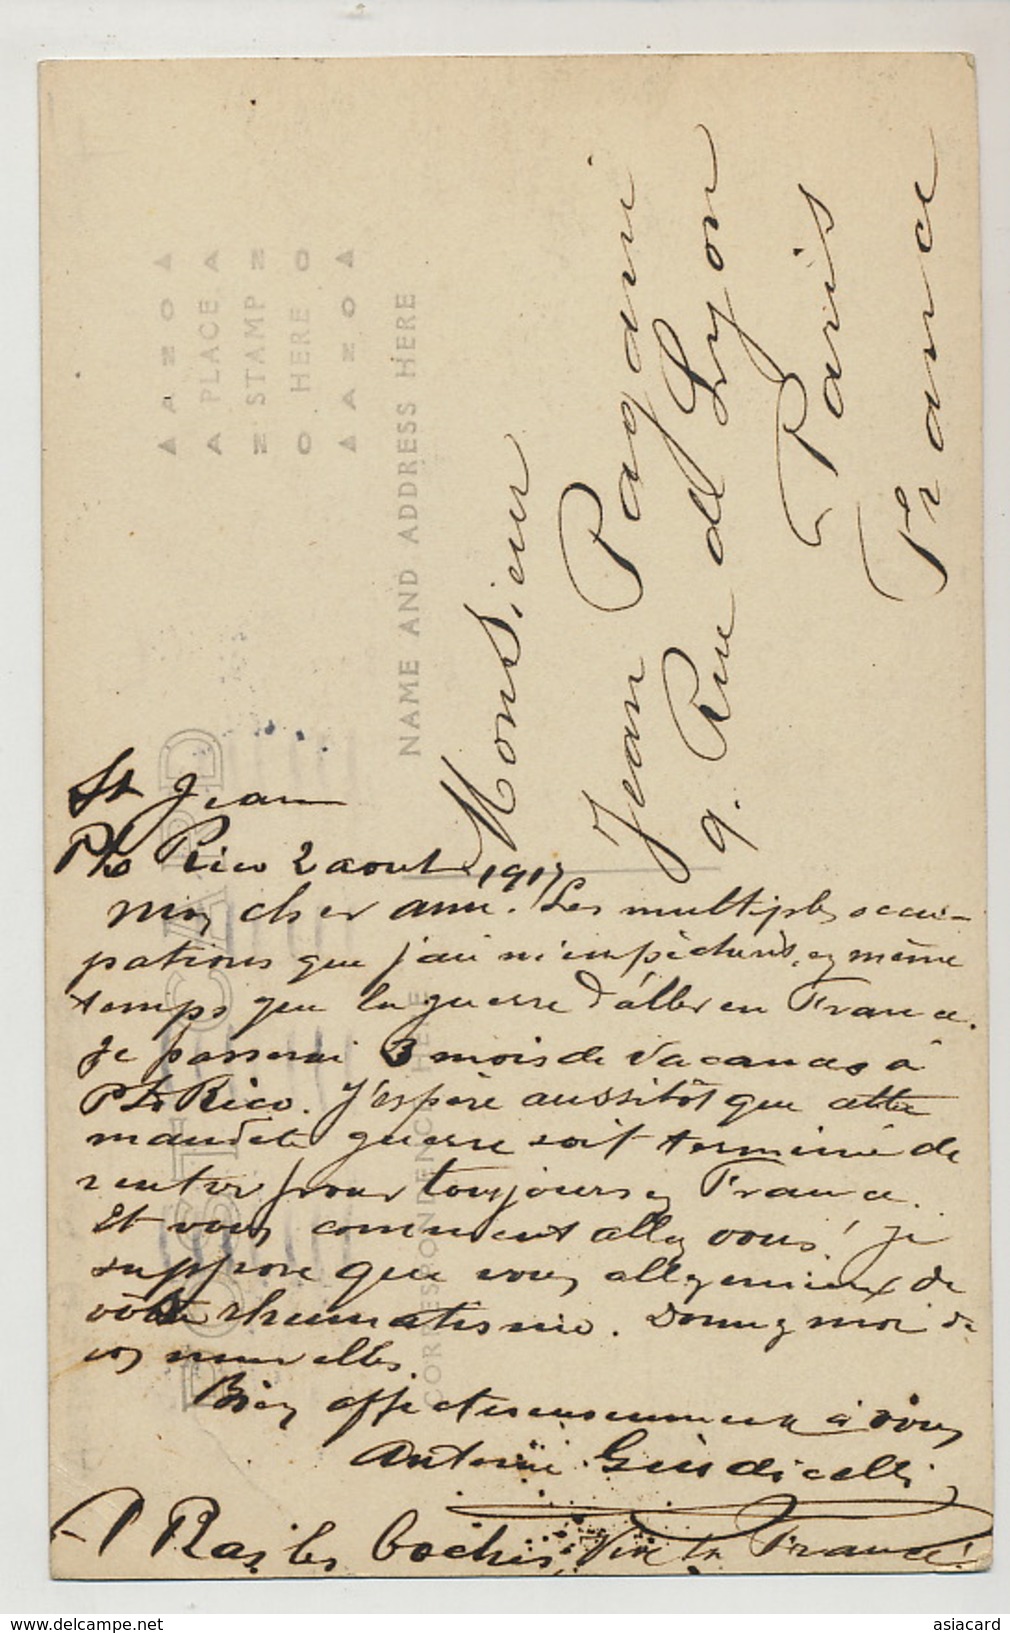 ▲ A Z O ▲
A PLACE A
Z STAMP Z
O HERE O
▲ A Z O ▲
POST CARD
NAME AND ADDRESS HERE
CORRESPONDENCE HERE
Monsieur
Jean Pagani
9. Rue de Lyon
Paris
France
St Jean
Pto Rico 2 aout 1917
Mon cher ami. Les multiples occu-
pations que j'ai m'empêchent, en même
temps que la guerre d'aller en France.
Je passerai 3 mois de vacances à
Pto Rico. J'espère aussitôt que cette
maudite guerre soit terminée de
rentrer pour toujours en France.
Et vous comment allez vous! je
suppose que vous allez mieux de
vôtre rhumatisme. Donnez moi de
vos nouvelles.
Bien affectueusement à vous
Antoine Giudicelli
A Bas les boches, Vive la France!
asiacard